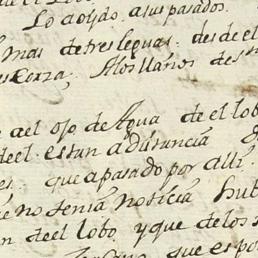 Lo a oydo, a sus pasados.
mas de tres leguas. desde el
Alos llanos de Sn
ael ojo de Agua de el lobo
deel. estan a Durancia
que a pasado por alli.
no tenia notiçia hub
n deel lobo y que de los
que es po